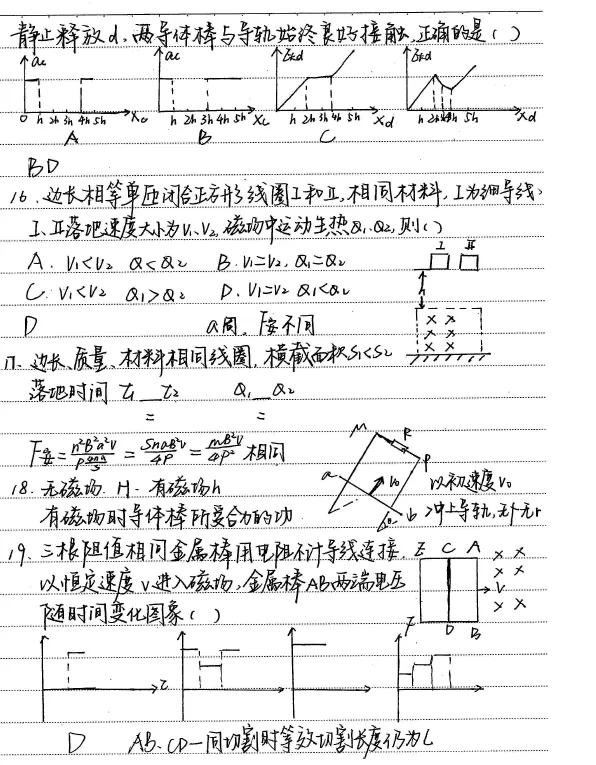 静止释放d.两导体棒与导轨始终良好接触,正确的是( )
ac ac Ekd Ekd
0 h 2h 3h 4h 5h xc h 2h 3h 4h 5h xc h 2h 3h 4h 5h xd h 2h 5h xd
A B C
BD
16.边长相等单匝闭合正方形线圈I和II,相同材料,I为细导线、
I、II落地速度大小为V1、V2,磁场中运动生热Q1、Q2,则( )
A. V1<V2 Q<Q2 B. V1=V2, Q1=Q2
C. V1<V2 Q1>Q2 D. V1=V2 Q1<Q2
I II
h
× × × × × ×
D a同,F安不同
17.边长、质量、材料相同线圈,横截面积S1<S2
落地时间 t1__t2 Q1__Q2
= =
F安=n²B²a²v/ρ4na/S=SnaB²v/4ρ=mB²v/4ρ² 相同
M R P a b V0 θ
18.无磁场.H.有磁场h 以初速度V0
有磁场时导体棒所受合力的功 冲上导轨,无f无r
19.三根阻值相同金属棒用电阻不计导线连接.
以恒定速度v进入磁场,金属棒AB两端电压
随时间变化图象( )
E C A × × × × V × × F D B
t
D AB、CD一同切割时等效切割长度仍为L